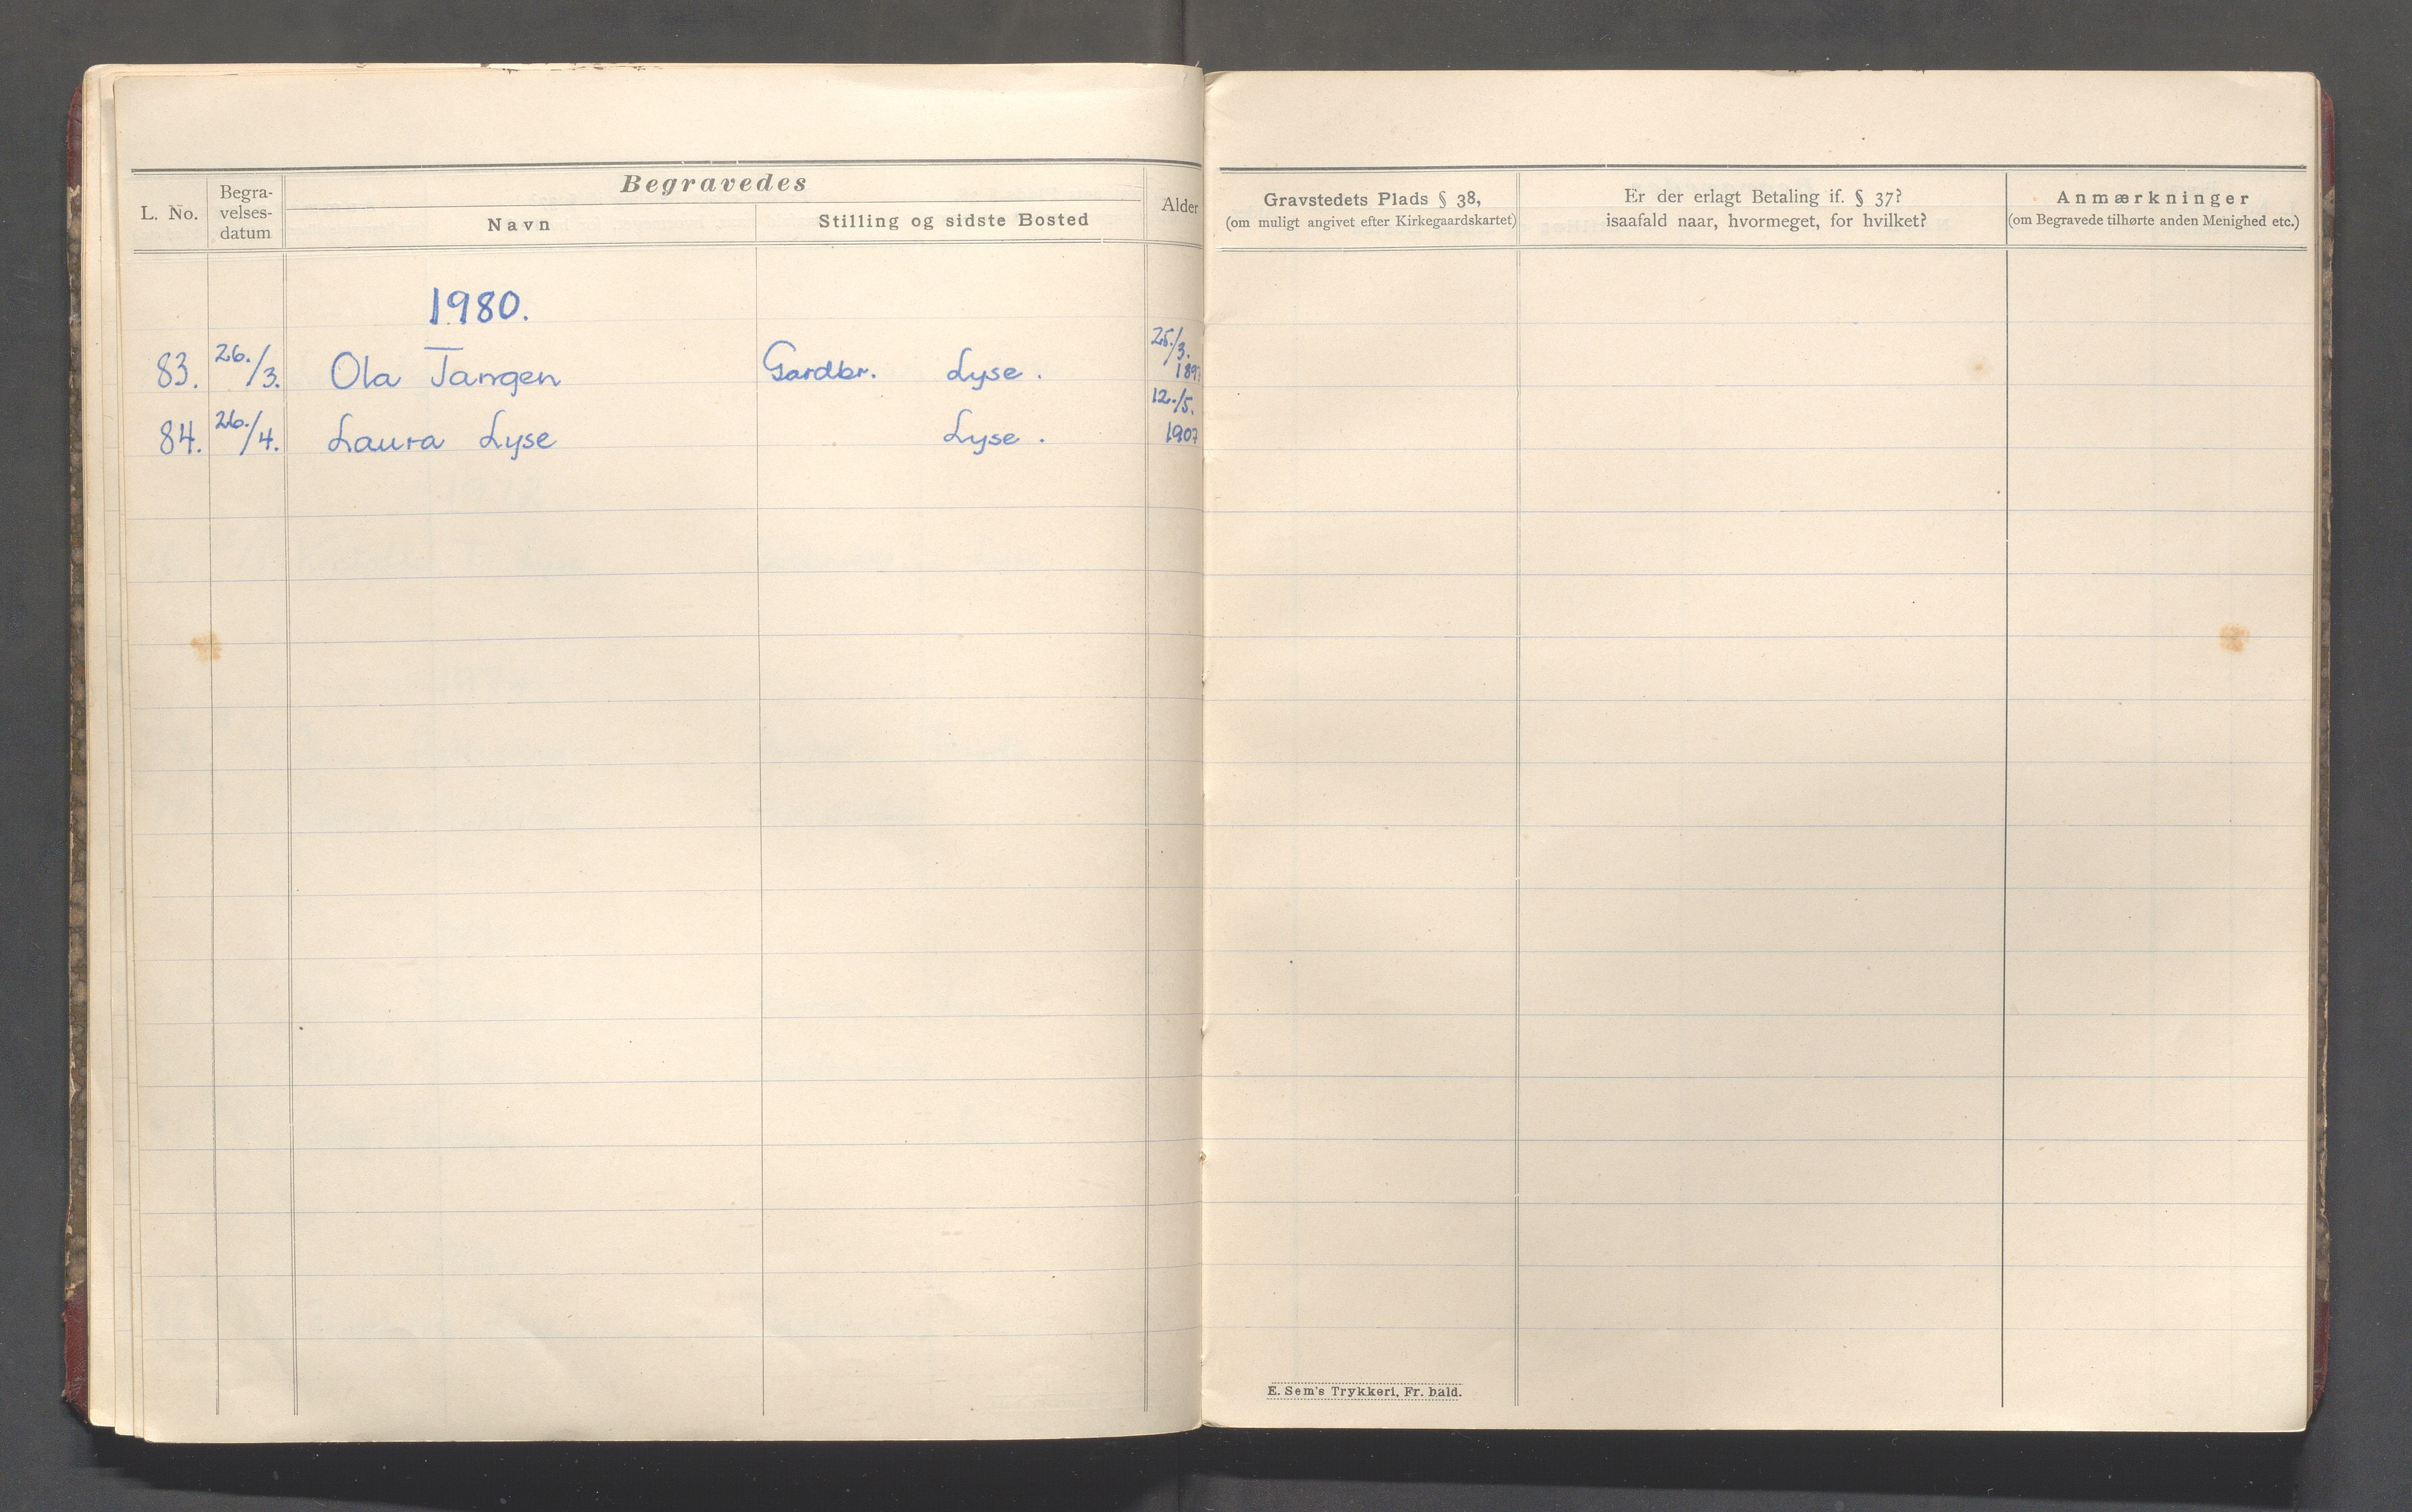 L. No.
Begra-
velses-
datum
Begravedes
Navn
Stilling og sidste Bosted
Alder
Gravstedets Plads § 38,
(om muligt angivet efter Kirkegaardskartet)
Er der erlagt Betaling if. § 37?
isaafald naar, hvormeget, for hvilket?
Anmærkninger
(om Begravede tilhørte anden Menighed etc.)
1980.
83. 26./3. Ola Tangen Gardbr. Lyse. 25./3.
84. 26./4. Laura Lyse Lyse. 12./5. 1907
E. Sem's Trykkeri, Fr. hald.